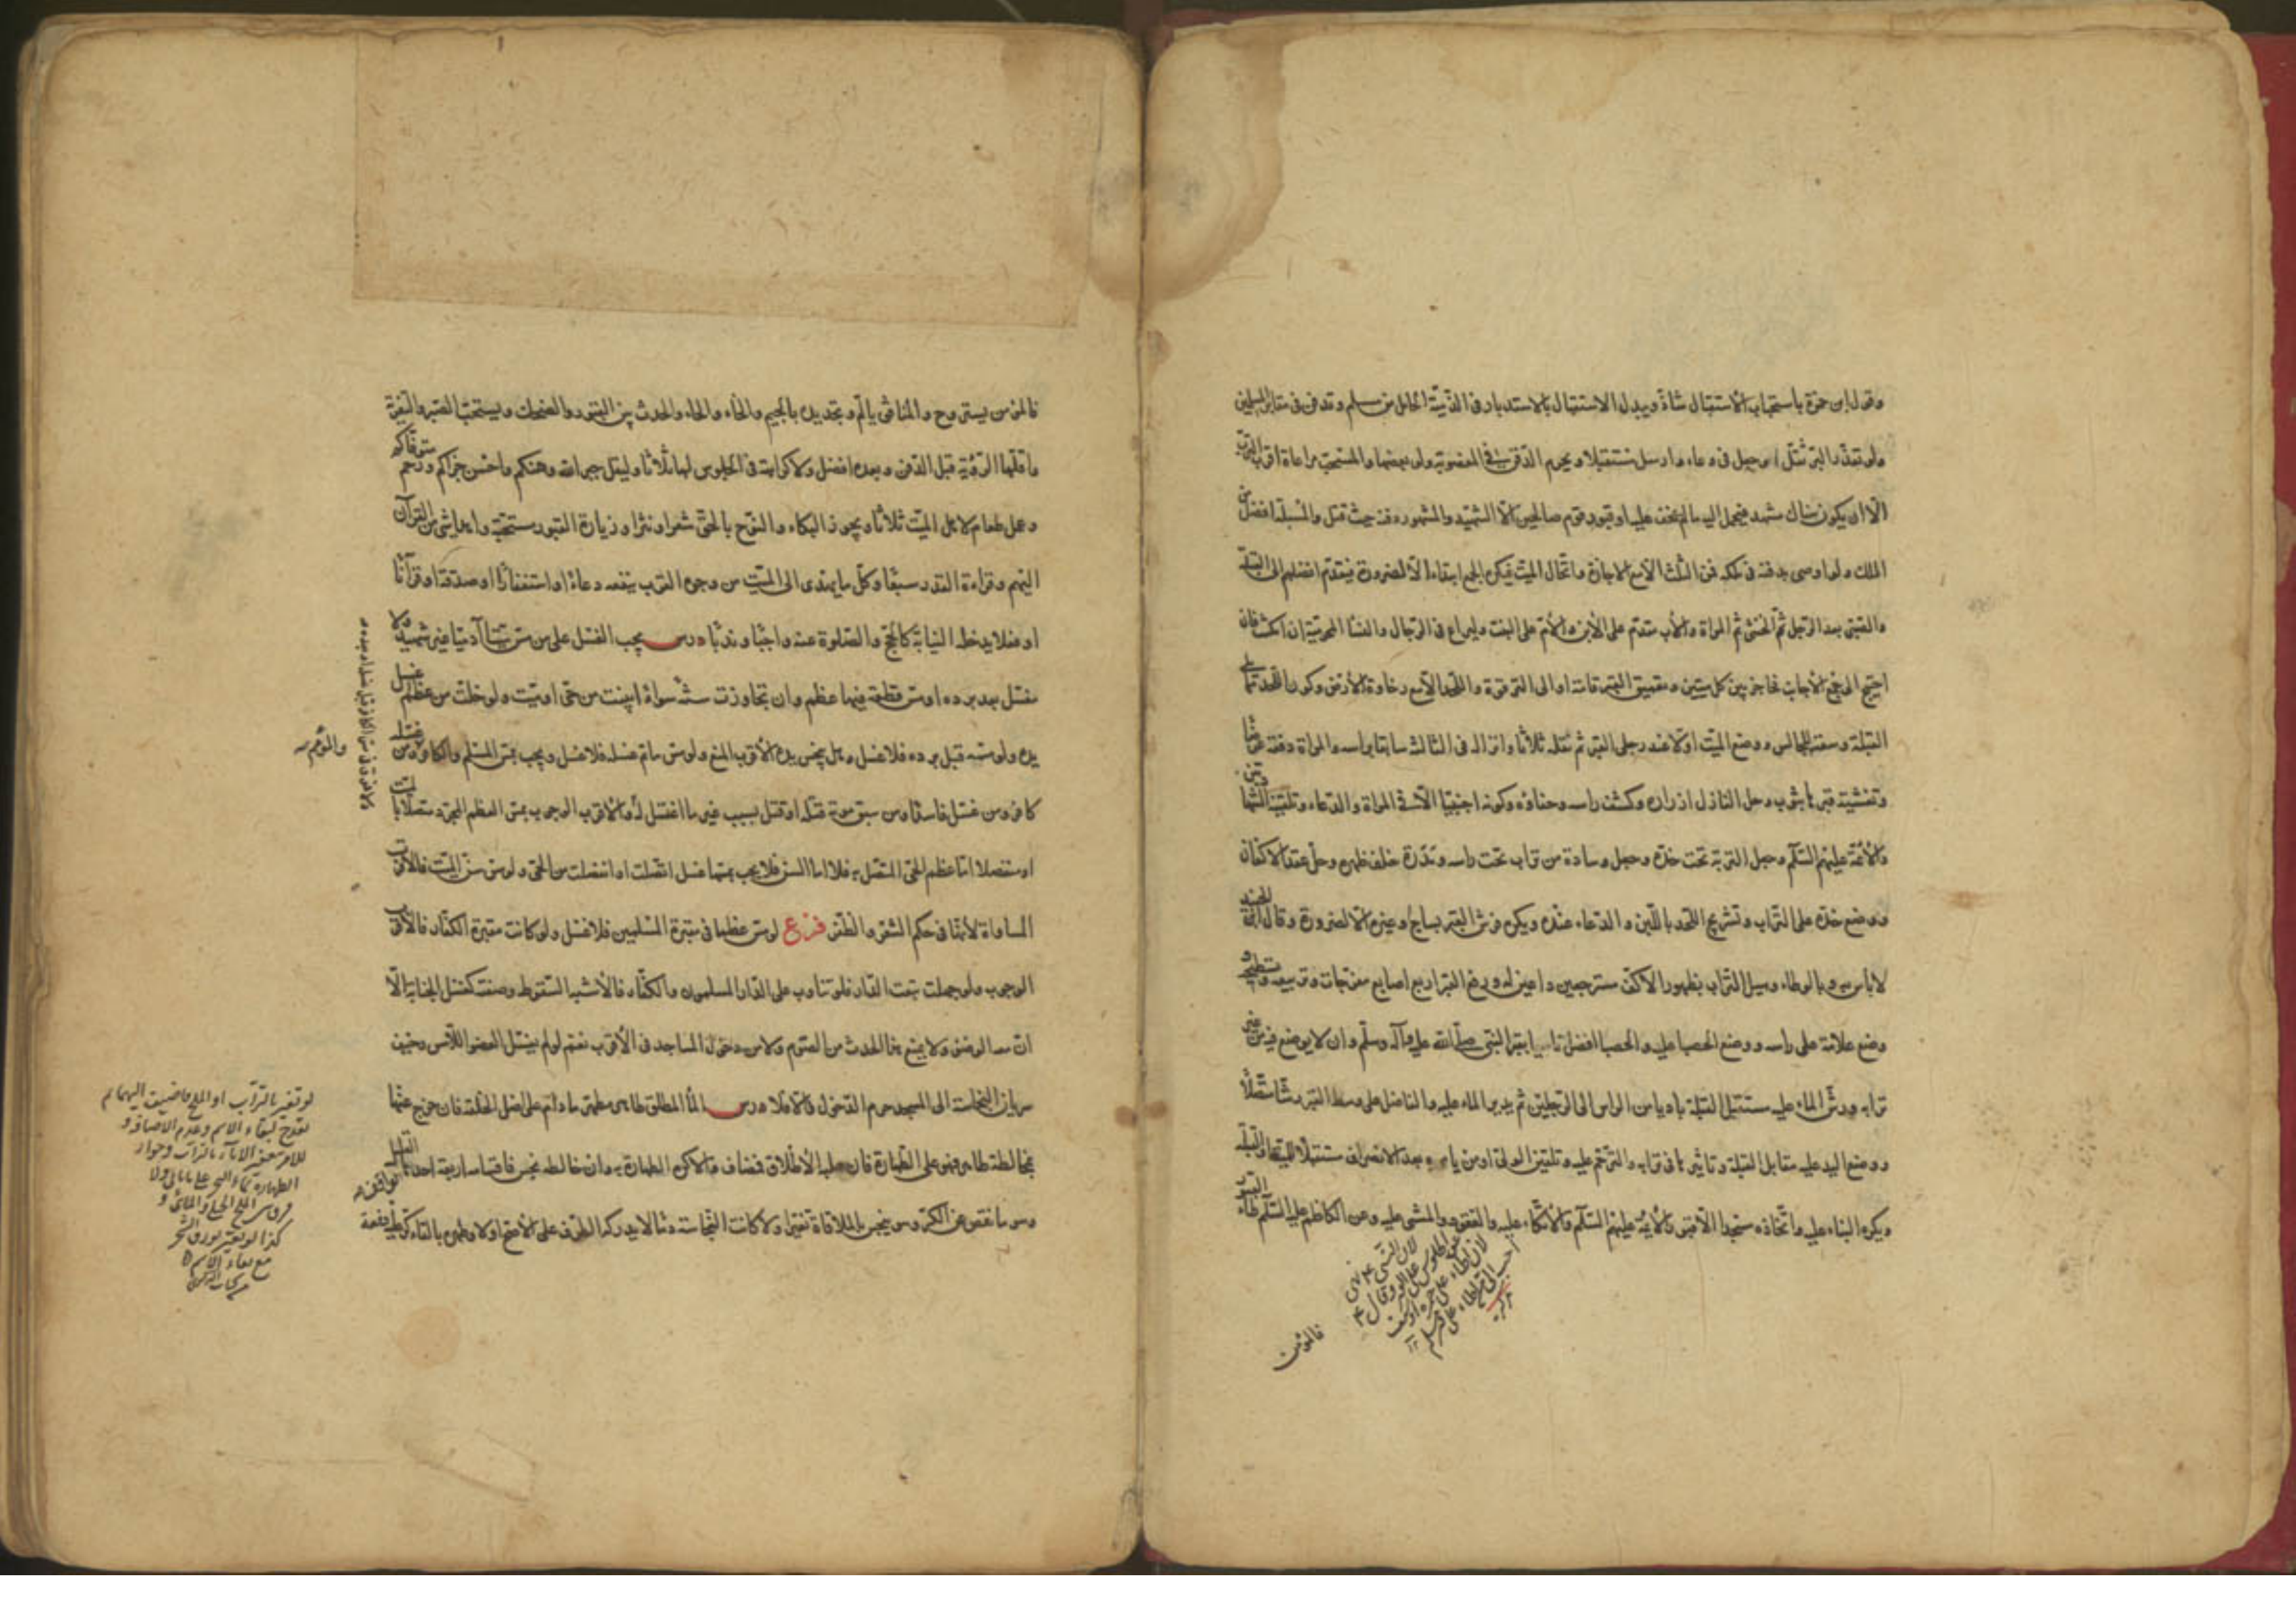 وقول ابن حمزة باستحباب الاستقبال شاذ ويبدل الاستقبال بالاستدبار في الذمية الحامل من مسلم وتدفن في مقابر المسلمين
ولو تعذر البر ثقل او جعل في وعاء وارسل مستقبلا ويحرم الدفن في المغصوب ولو بعضها والمستحب مراعاة اقرب الترب
الا ان يكون هناك مشهد فيحمل اليه ما لم يخف عليه او قبور قوم صالحين الا الشهيد والمشهور دفنه حيث قتل والمسبلة افضل من
الملك ولو اوصى بدفنه في ملكه فمن الثلث الا مع الاجازة واتحال الميت فيكره الجمع ابتداء الا لضرورة فيقدم افضلهم الى القبلة
والصبي بعد الرجل ثم الخنثى ثم المراة والاب مقدم على الابن والام على البنت وليراع في الرجال والنساء المحرمية ان امكن فان
احتيج الى جمع الاجانب فحاجز بين كل ميتين وتعميق القبر قامة او الى الترقوة واللحد الا مع رخاوة الارض وكون اللحد مما يلي
القبلة وسعته للجالس ووضع الميت اولا عند رجلي القبر ثم نقله ثلاثا وانزاله في الثالث سابقا براسه والمراة دفعة عرضا
وتغشية قبرها بثوب وحل النازل ازراره وكشف راسه وحفاؤه وكونه اجنبيا الا في المراة والدعاء وتلقينه الشهادتين
والائمة عليهم السلم وجعل التربة تحت خده وجعل وسادة من تراب تحت راسه ومدرة خلف ظهره وحل عقد الاكفان
ووضع خده على التراب وتشريج اللحد باللبن والدعاء عنده ويكره فرش القبر بساج وغيره الا لضرورة وقال ابن الجنيد
لا باس به وبالوطاء وهيل التراب بظهور الاكف مسترجعين داعين له ورفع القبر اربع اصابع مفرجات وتربيعه وتسطيحه
وضع علامة على راسه ووضع الحصباء عليه والحصباء افضل تاسيا بقبر النبي صلى الله عليه وآله وسلم وان لا يوضع فيه من غير
ترابه ورش الماء عليه مستقبل القبلة باديا من الراس الى الرجلين ثم يدير الماء عليه والفاضل على وسط القبر رشا متصلا
ووضع اليد عليه مقابل القبلة وتاثيرها في ترابه والترحم عليه وتلقين الولي او من يامره بعد الانصراف مستقبلا للقبلة والقبر
ويكره البناء عليه واتخاذه مسجدا الا قبور الائمة عليهم السلم والاتكاء عليه والقعود والمشي عليه وعن الكاظم عليه السلم طأ القبور
فالمؤمن
فالمؤمن يستروح والمنافق يألم وتجديده بالجيم والخاء والحاء والحدث بين القبور والضحك ويستحب التعزية
واقلها الرؤية قبل الدفن وبعده افضل ولا كراهة في الجلوس لها ثلاثا وليقل جبر الله وهنكم واحسن عزاكم ورحم متوفاكم
وعمل طعام لاهل الميت ثلاثا ويجوز البكاء والنوح بالحق شعرا ونثرا وزيارة القبور مستحبة واهداء شي من القرآن
اليهم وقراءة القدر سبعا وكل ما يهدى الى الميت من وجوه القرب ينفعه دعاء او استغفارا او صدقة او قرآنا
او فعلا يدخله النيابة كالحج والصلوة عنه واجبا وندبا درس يجب الغسل على من مس ميتا آدميا غير شهيد ولا
مغتسل بعد برده او مس قطعة فيها عظم وان تجاوزت سنة سواء ابينت من حي او ميت ولو خلت من عظم غسل
يده ولو مسه قبل برده فلا غسل وهل ينجس يده الاقرب المنع ولو مس ما تم غسله فلا غسل ويجب بمس المسلم والكافر ومن غسله
كافر ومن غسل فاسدا ومن سبق موته قتله او قتل بسبب غير ما اغتسل له والاقرب الوجوب بمس العظم المجرد متصلا
او منفصلا اما عظم الحي المتصل به فلا اما السن فلا يجب بمسها غسل اتصلت او انفصلت من الحي ولو مس سن الميت فالاقرب
المساواة لأنها في حكم الشعر والظفر فرع لو مس عظما في مقبرة المسلمين فلا غسل ولو كانت مقبرة الكفار فالاقرب
الوجوب ولو جهلت تبعت الدار فلو تناوب على الدار المسلمون والكفار فالاشبه السقوط وصفته كغسل الجنابة الا
ان معه الوضوء ولا يمنع هذا الحدث من الصوم ولا من دخول المساجد في الاقرب نعم لو لم يغسل العضو اللامس وخيف
سريان النجاسة الى المسجد حرم الدخول والا فلا درس الماء المطلق طاهر مطهر ما دام على اصل الخلقة فان خرج عنها
بمخالطة طاهر فهو على الطهارة فان سلبه الاطلاق فمضاف والا كره الطهارة به وان خالطه نجس فاقسامه اربعة احدها القليل
وهو ما نقص عن الكر وهو ينجس بالملاقاة تغير او لا كانت النجاسة دما لا يدركه الطرف على الاصح او لا وطهره بالقاء كر عليه دفعة
لو تغير بالتراب او الملح
لبقاء الاسم وعدم الاضافة
كذا لو تغير بورق الشجر
مع بقاء الاسم